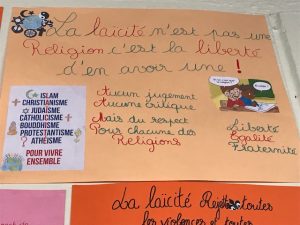 La laïcité n'est pas une
Religion c'est la liberté
d'en avoir une !
ISLAM
CHRISTIANISME
JUDAÏSME
CATHOLICISME
BOUDDHISME
PROTESTANTISME
ATHEISME
POUR VIVRE
ENSEMBLE
Aucum jugement
Aucune critique
Mais du respect
Pour chacune des
Religions
Liberté
Egalité
Fraternité
La laïcité Rejette toutes
les violences et toutes